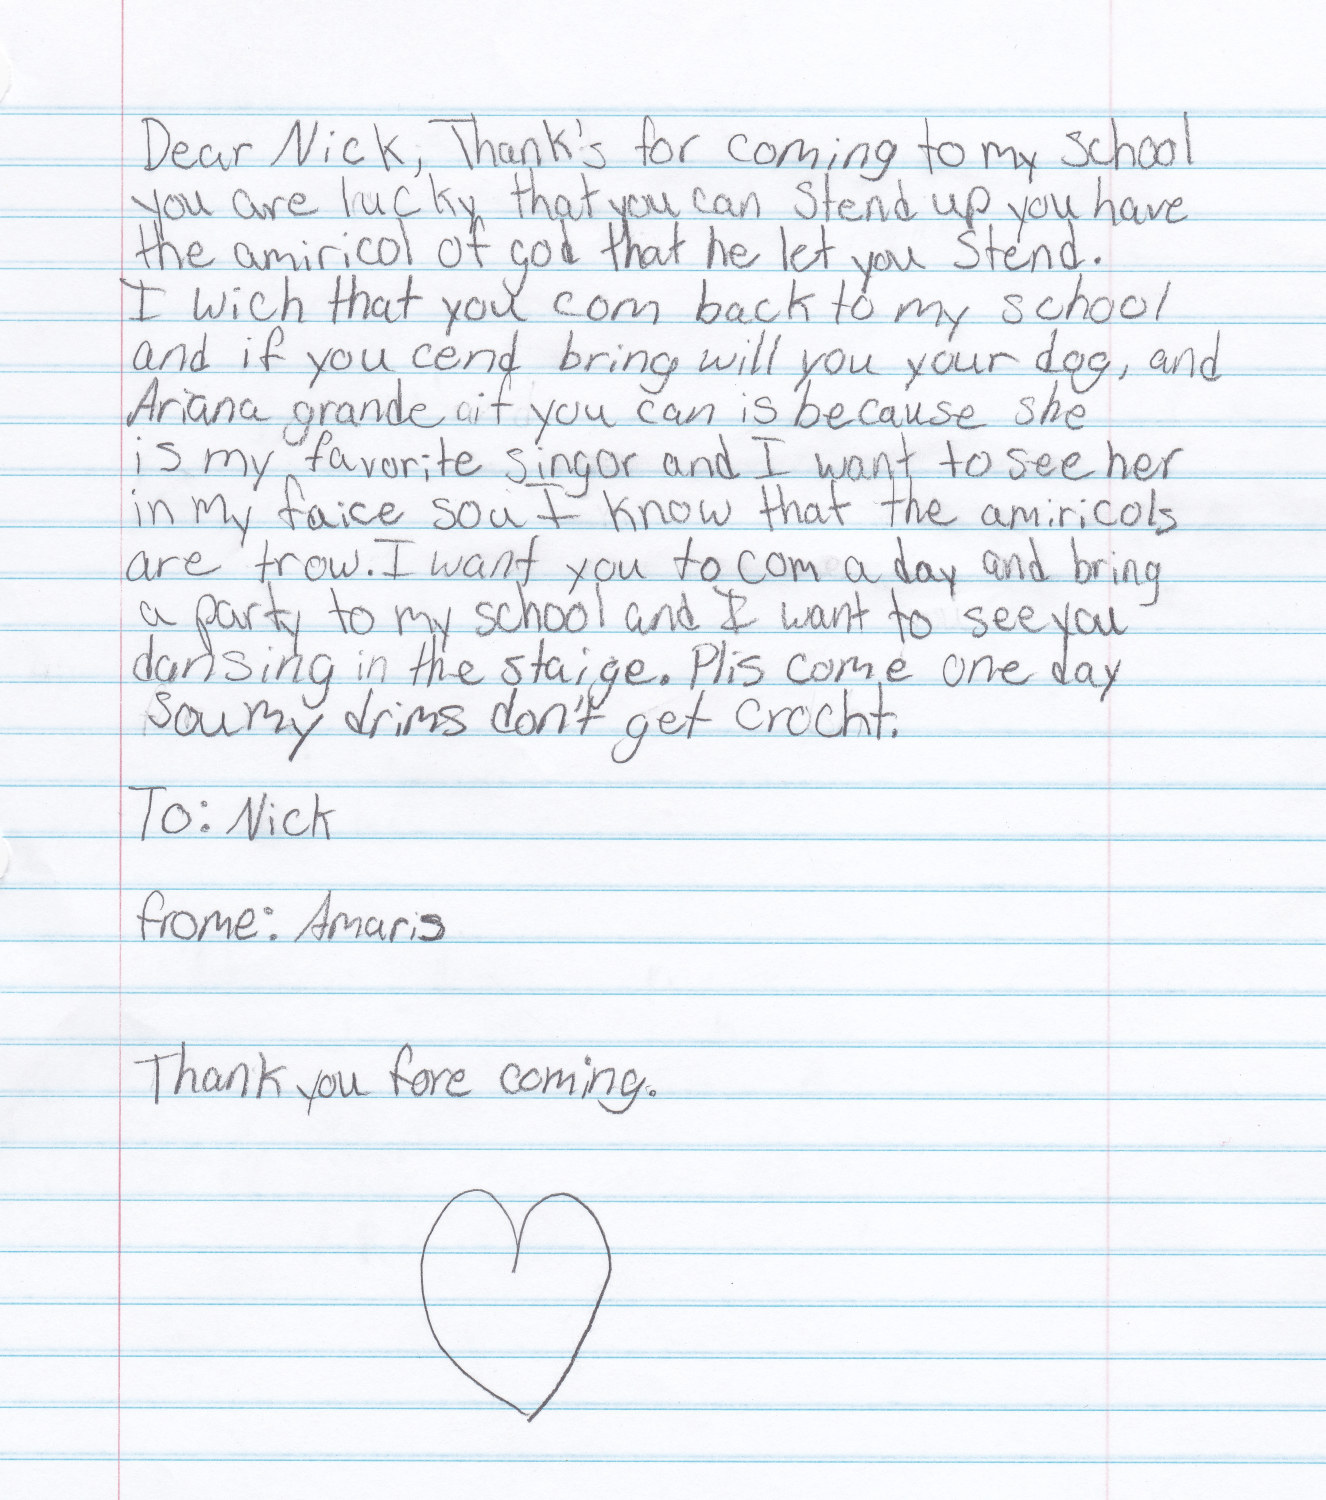 Dear Nick, Thank's for coming to my school
you are lucky that you can Stend up you have
the amiricol of god that he let you Stend.
I wich that you com back to my school
and if you cend bring will you your dog, and
Ariana grande ait you can is because she
is my favorite singor and I want to see her
in my faice sou I know that the amiricols
are trow. I want you to com a day and bring
a party to my school and I want to see you
dansing in the staige. Plis come one day
sou my drims don't get crocht.
To: Nick
frome: Amaris
Thank you fore coming.